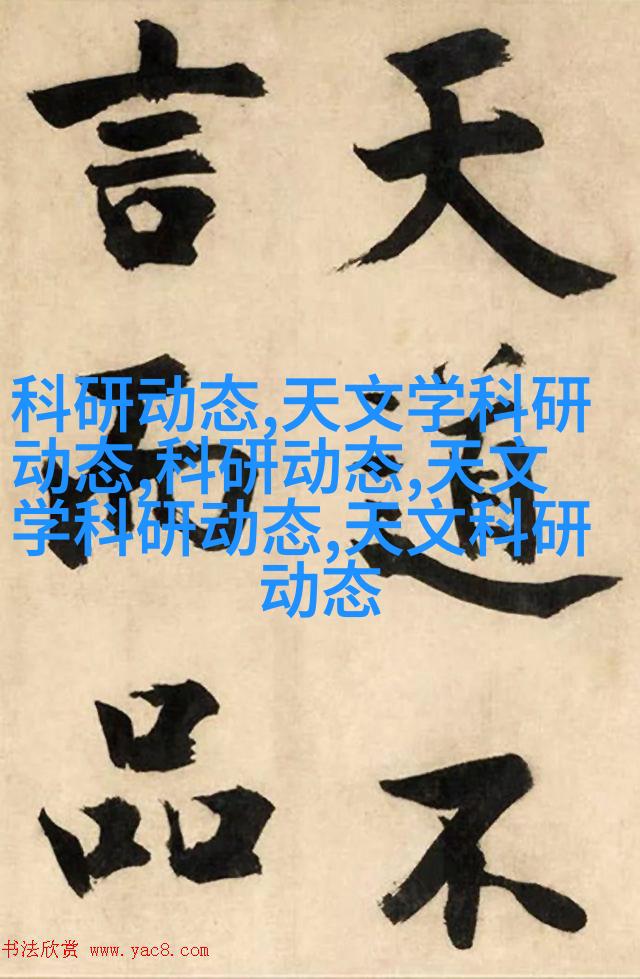 天道不
言而品
科研动态,天文学科研
动态,科研动态,天文
学科研动态,天文科研
动态
书法欣赏 www.yac8.com